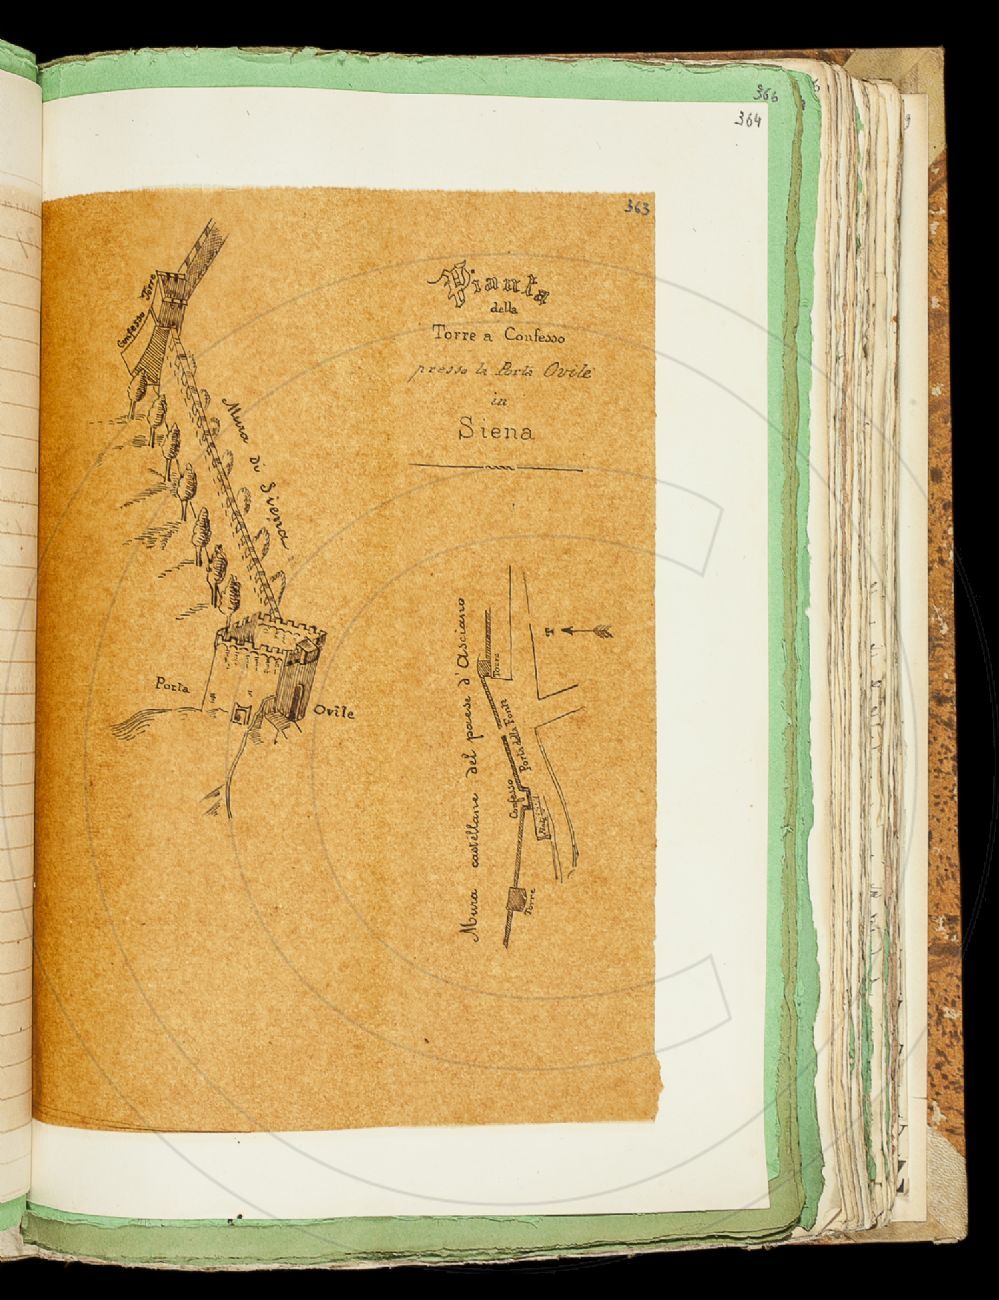 366
364
363
Pianta
della
Torre a Confesso
presso la Porta Ovile
in
Siena
Torre
Confesso
Mura di Siena
Porta
Ovile
Mura castellane del paese d'Asciano
T
Torre
Porta della Fonte
Confesso
Torre